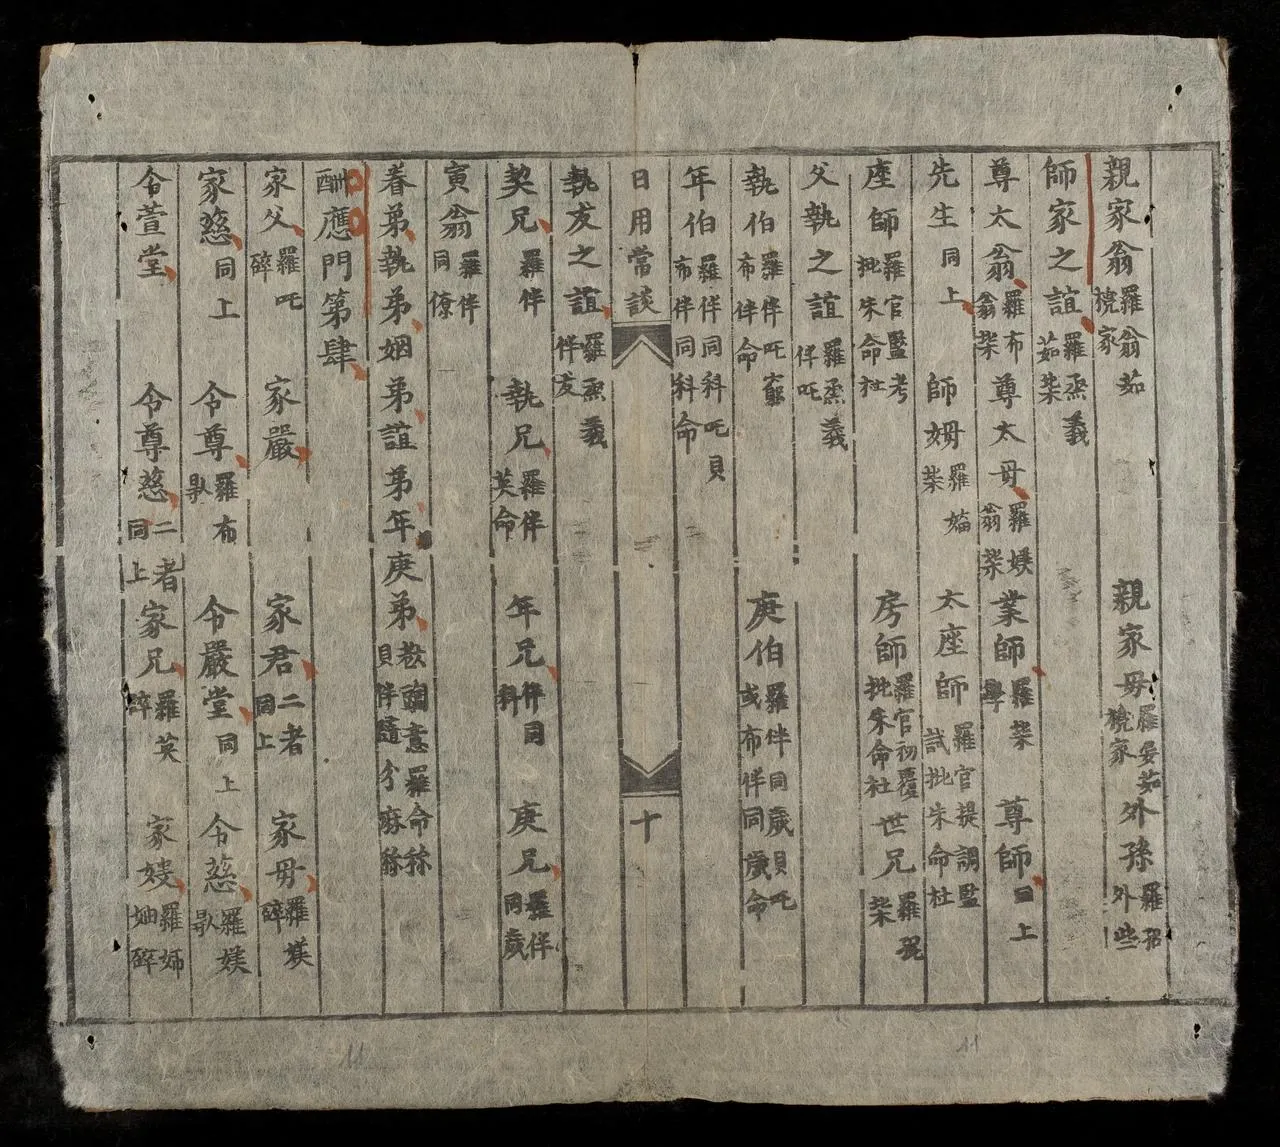 親家翁羅翁茹櫆家 親家母羅妾茹櫆家 外孫羅招外些
師家之誼羅烝義茹柴
尊太翁羅布翁柴 尊太母羅媄翁柴 業師羅柴學 尊師曰上
先生同上 師姆羅媌柴 太座師羅官提調監試批朱命社
座師羅官監考批朱命社 房師羅官初覆批朱命社 世兄羅柴
父執之誼羅烝義伴吒
執伯羅伴吒布伴命 庚伯羅伴同歲貝吒或布伴同歲命
年伯羅伴同科吒貝布伴同科命
日用常談 十
執友之誼羅烝義伴友
契兄羅伴 執兄羅伴英命 年兄伴同科 庚兄羅伴同歲
寅翁羅伴同僚
眷弟執弟姻弟誼弟年庚弟意羅命稱貝伴隨分麻稱
酬應門第肆
家父羅吒碎 家嚴 家君二者同上 家母羅媄碎
家慈同上 令尊羅布 令嚴堂同上 令慈羅媄
令萱堂 令尊慈二者同上 家兄羅英碎 家嫂羅姉妯碎
11
11